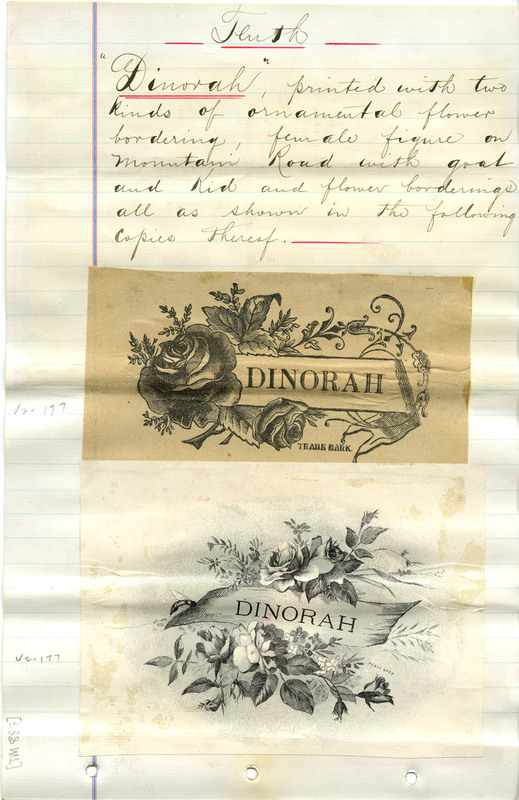 Tenth
"Dinorah", printed with two
kinds of ornamental flower
bordering, female figure on
Mountain Road with goat
and kid and flower borderings
all as shown in the following
copies thereof.
DINORAH
TRADE MARK.
V2-197
DINORAH
TRADE MARK
V2-197
[TM 887]